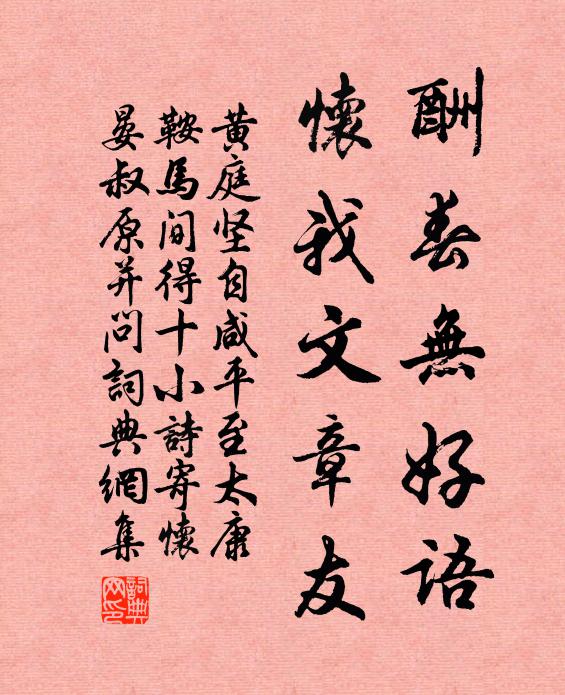 酬春無好語
懷我文章友
黃庭坚自咸平至太康
鞍馬间得十小詩寄懷
晏叔原并问詞典網集
詞典
网印